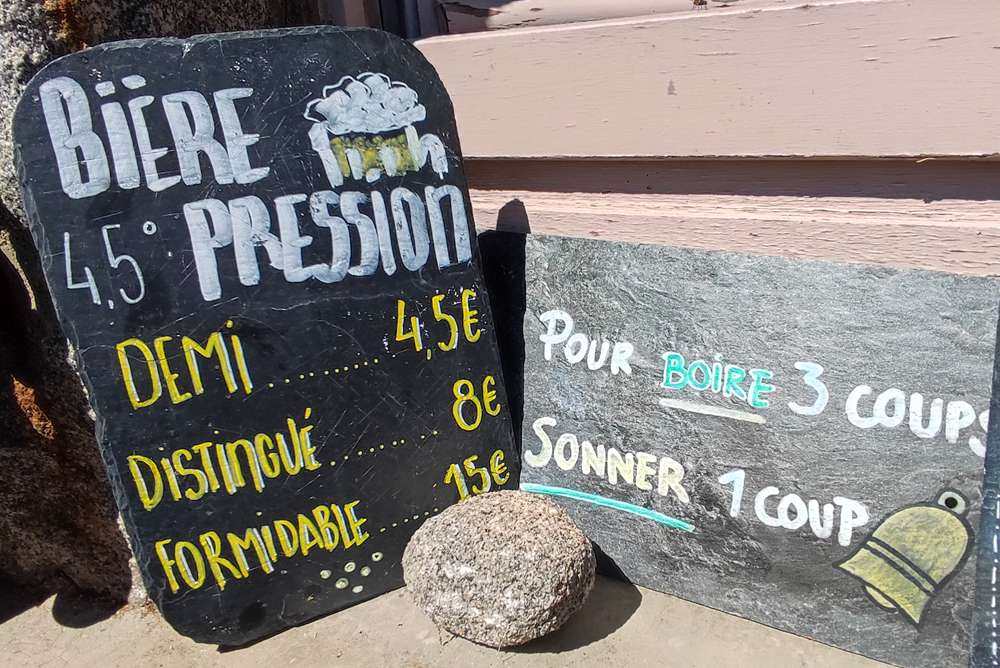 BIÈRE
4,5° PRESSION
DEMI ............ 4,5€
DISTINGUÉ ......... 8€
FORMIDABLE ...... 15€
POUR BOIRE 3 COUPS
SONNER 1 COUP